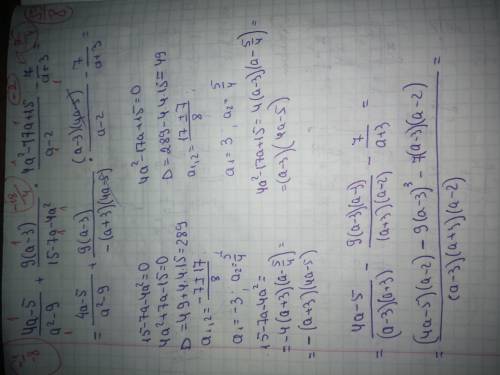 (4a-5)/(a²-9) + 9(a-3)/(15-7a-4a²) · (4a²-17a+15)/(a-2) - 7/(a+3) =
= (4a-5)/(a²-9) + 9(a-3)/(-(a+3)(4a-5)) · (a-3)(4a-5)/(a-2) - 7/(a+3) =
15-7a-4a²=0
4a²+7a-15=0
D=49+4·4·15=289
a₁,₂=(-7±17)/8
a₁=-3; a₂=5/4
15-7a-4a²=
=-4(a+3)(a-5/4)=
=-(a+3)(4a-5)
4a²-17a+15=0
D=289-4·4·15=49
a₁,₂=(17±7)/8
a₁=3; a₂=5/4
4a²-17a+15=4(a-3)(a-5/4)=
=(a-3)(4a-5)
= (4a-5)/((a-3)(a+3)) - 9(a-3)(a-3)/((a+3)(a-2)) - 7/(a+3) =
= ((4a-5)(a-2) - 9(a-3)³ - 7(a-3)(a-2))/((a-3)(a+3)(a-2)) =